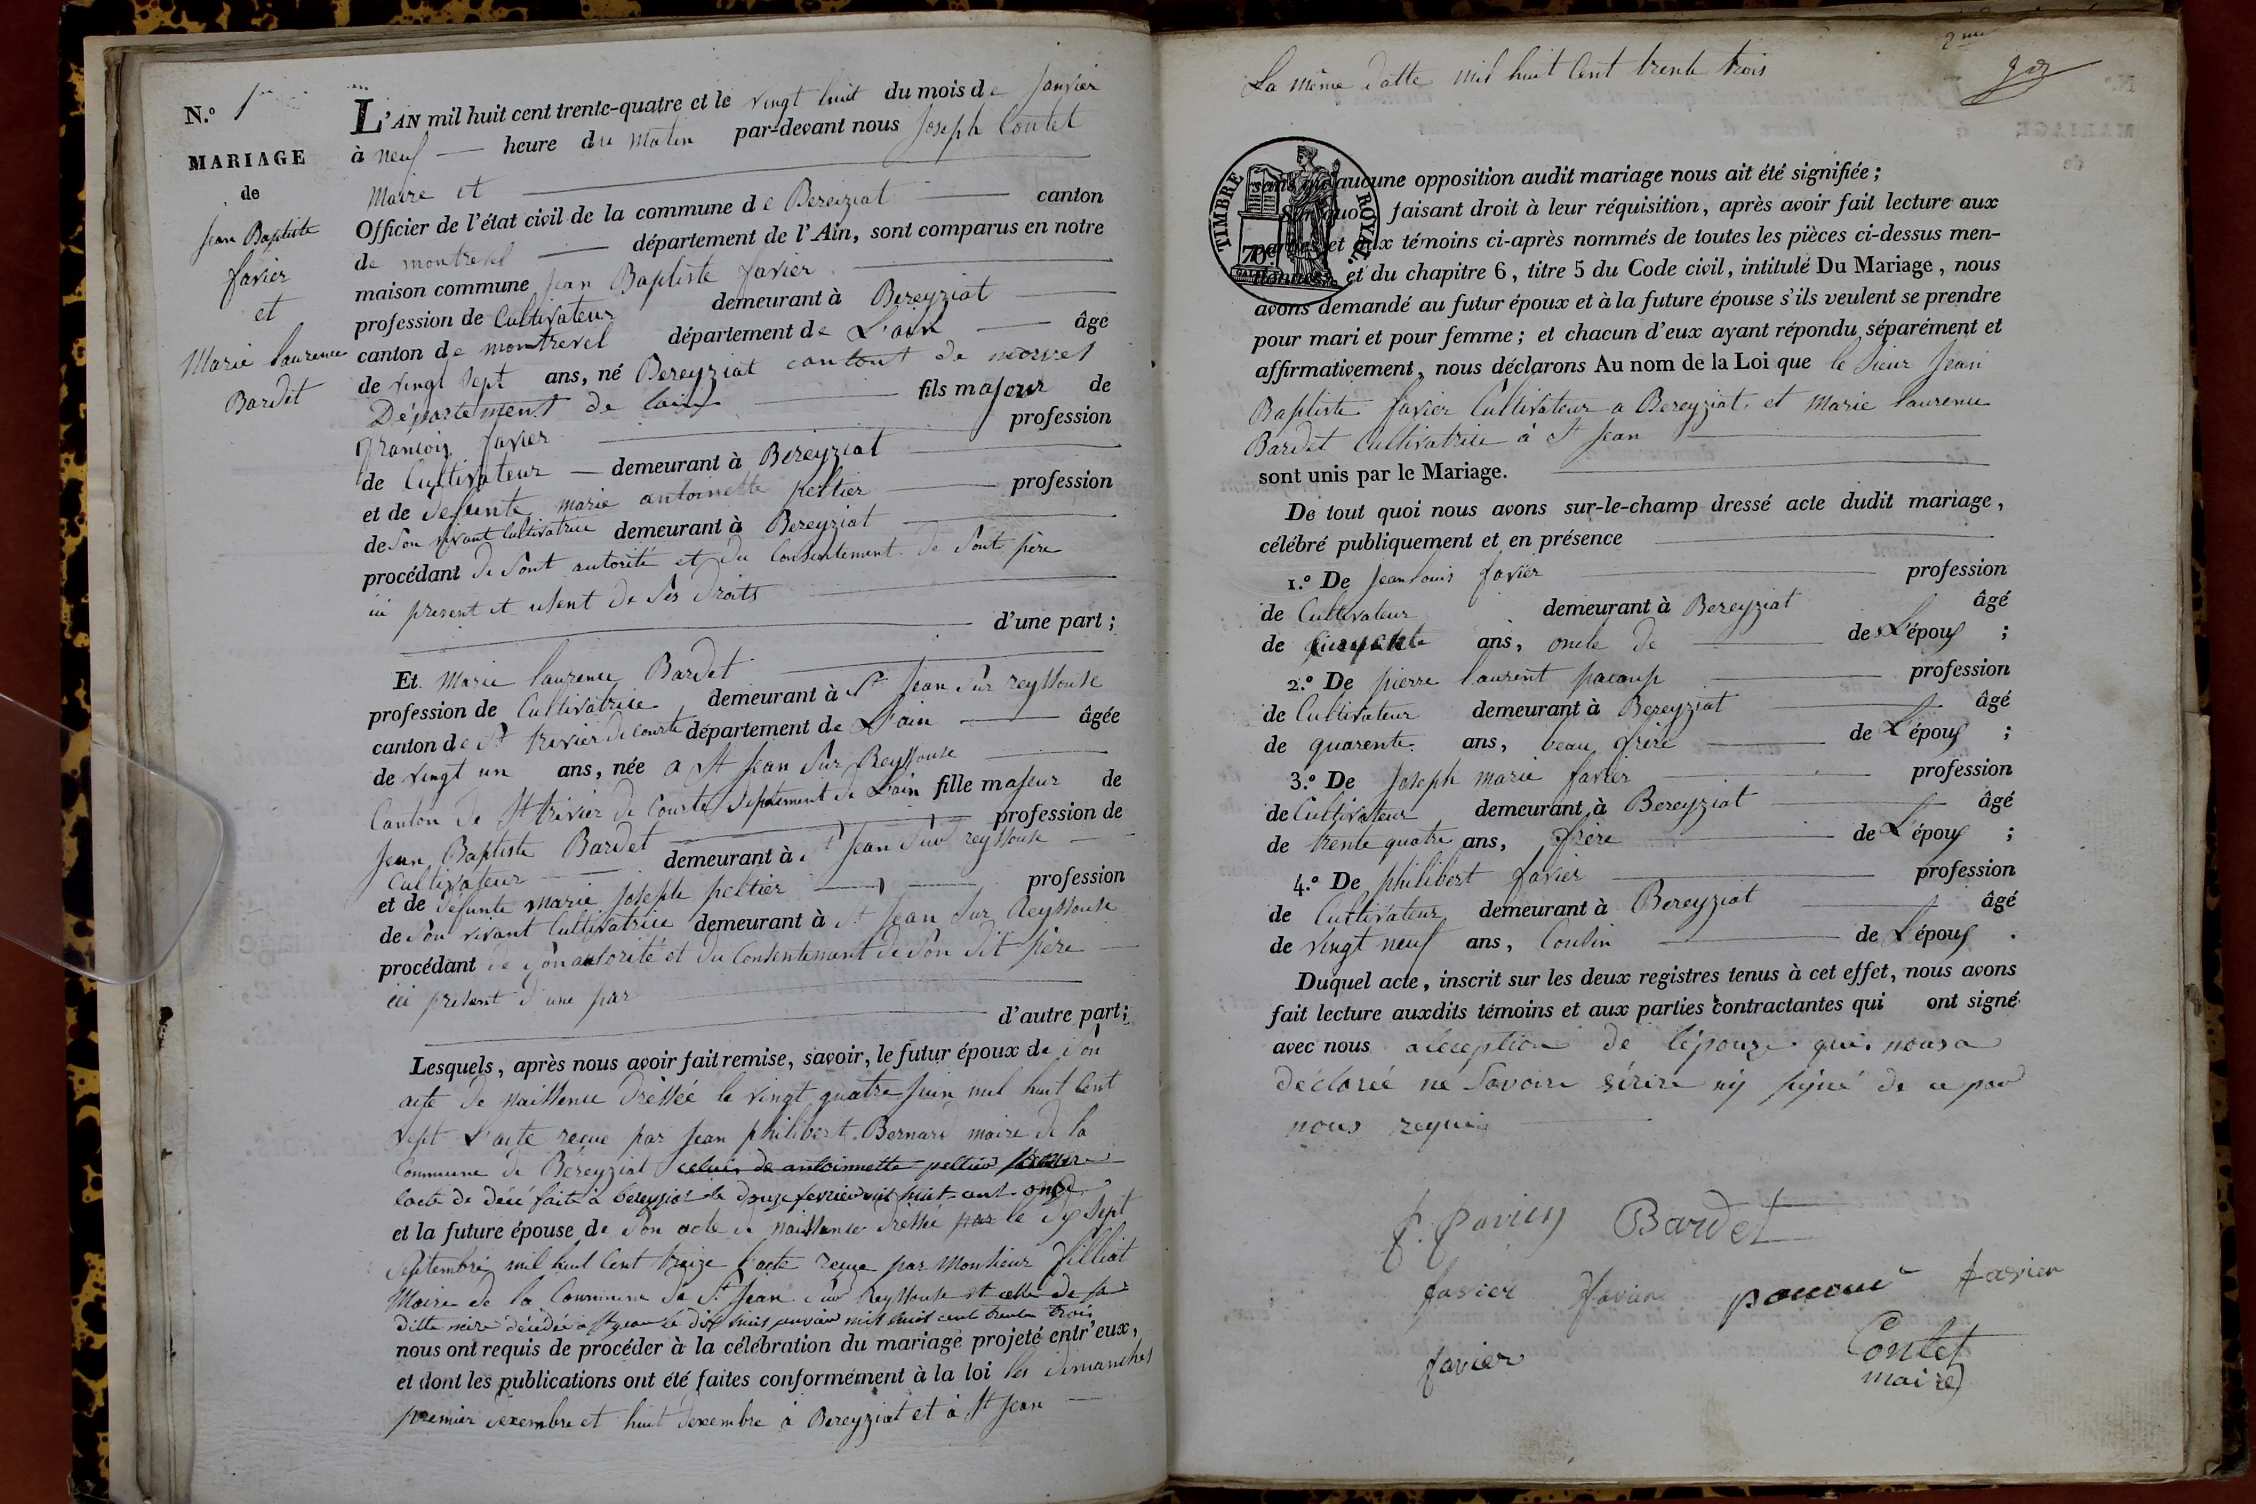 N.º 1
MARIAGE
de
Jean Baptiste
favier
et
Marie laurence
Bardet
L'AN mil huit cent trente-quatre et le vingt huit du mois de Janvier
à neuf heure du matin par-devant nous Joseph Contet
Maire et
Officier de l'état civil de la commune de Bereyziat canton
de montrevel département de l'Ain, sont comparus en notre
maison commune Jean Baptiste favier
profession de Cultivateur demeurant à Bereyziat
canton de montrevel département de L'ain âgé
de vingt sept ans, né Bereyziat cantont de
Département de lain fils majeur de
francois favier profession
de Cultivateur demeurant à Bereyziat
et de defunte marie antoinette peltier profession
de Son vivant Cultivatrice demeurant à Bereyziat
procédant de Sont autorité et du Consentement de Sont père
ici present et usent de Ses droits
d'une part ;
Et Marie laurence Bardet
profession de Cultivatrice demeurant à St Jean Sur reyssouse
canton de St trivier de courte département de L'ain âgée
de vingt un ans, née a St Jean Sur Reyssouse
Canton de St trivier de Courte département de L'ain fille majeur de
Jean Baptiste Bardet profession de
Cultivateur demeurant à St Jean Sur reyssouse
et de defunte Marie Josephe peltier profession
de Son vivant Cultivatrice demeurant à St Jean Sur Reyssouse
procédant de Son autorité et du Consentement de Son dit père
ici présent d'une par
d'autre part ;
Lesquels, après nous avoir fait remise, savoir, le futur époux de Son
acte de naissence dressée le vingt quatre Juin mil huit Cent
Sept L'acte reçue par Jean philibert Bernard maire de la
Commune de Béreyziat celui de antoinnette peltier
lacte de décé faite à bereyziat le douze fevrier mil huit cent onze
et la future épouse de Son acte de naissence dressée par le dix Sept
Septembre mil huit Cent treize l'acte reçue par Monsieur filliat
Maire de la Commune de St Jean Sur Reyssouse et celle de sa
ditte mère décédée a St jean le dix huit janvier mil huit cent trente trois
nous ont requis de procéder à la célébration du mariage projeté entr'eux,
et dont les publications ont été faites conformément à la loi les dimanches
premier dexembre et huit dexembre à Bereyziat et à St Jean
2me
La même datte mil huit Cent trente trois
TIMBRE ROYAL.
sans qu'aucune opposition audit mariage nous ait été signifiée ;
Sur quoi faisant droit à leur réquisition, après avoir fait lecture aux
parties et aux témoins ci-après nommés de toutes les pièces ci-dessus men-
tionnées, et du chapitre 6, titre 5 du Code civil, intitulé Du Mariage, nous
avons demandé au futur époux et à la future épouse s'ils veulent se prendre
pour mari et pour femme ; et chacun d'eux ayant répondu séparément et
affirmativement, nous déclarons Au nom de la Loi que le Sieur Jean
Baptiste favier Cultivateur a Bereyziat et Marie laurence
Bardet Cultivatrice à St Jean
sont unis par le Mariage.
De tout quoi nous avons sur-le-champ dressé acte dudit mariage,
célébré publiquement et en présence
1.º De Jean louis favier profession
de Cultivateur demeurant à Bereyziat âgé
de ans, oncle de de L'époux ;
2.º De pierre laurent pacoup profession
de Cultivateur demeurant à Bereyziat âgé
de quarente ans, beau frère de L'époux ;
3.º De Joseph marie favier profession
de Cultivateur demeurant à Bereyziat âgé
de trente quatre ans, frère de L'époux ;
4.º De philibert favier profession
de Cultivateur demeurant à Bereyziat âgé
de vingt neuf ans, Cousin de L'époux .
Duquel acte, inscrit sur les deux registres tenus à cet effet, nous avons
fait lecture auxdits témoins et aux parties contractantes qui ont signé
avec nous alception de l'épouze qui nous a
déclarée ne Savoire sérire ny signé de ce par
nous requis
f. favier Bardet
favier favier favier
favier Contet
maire